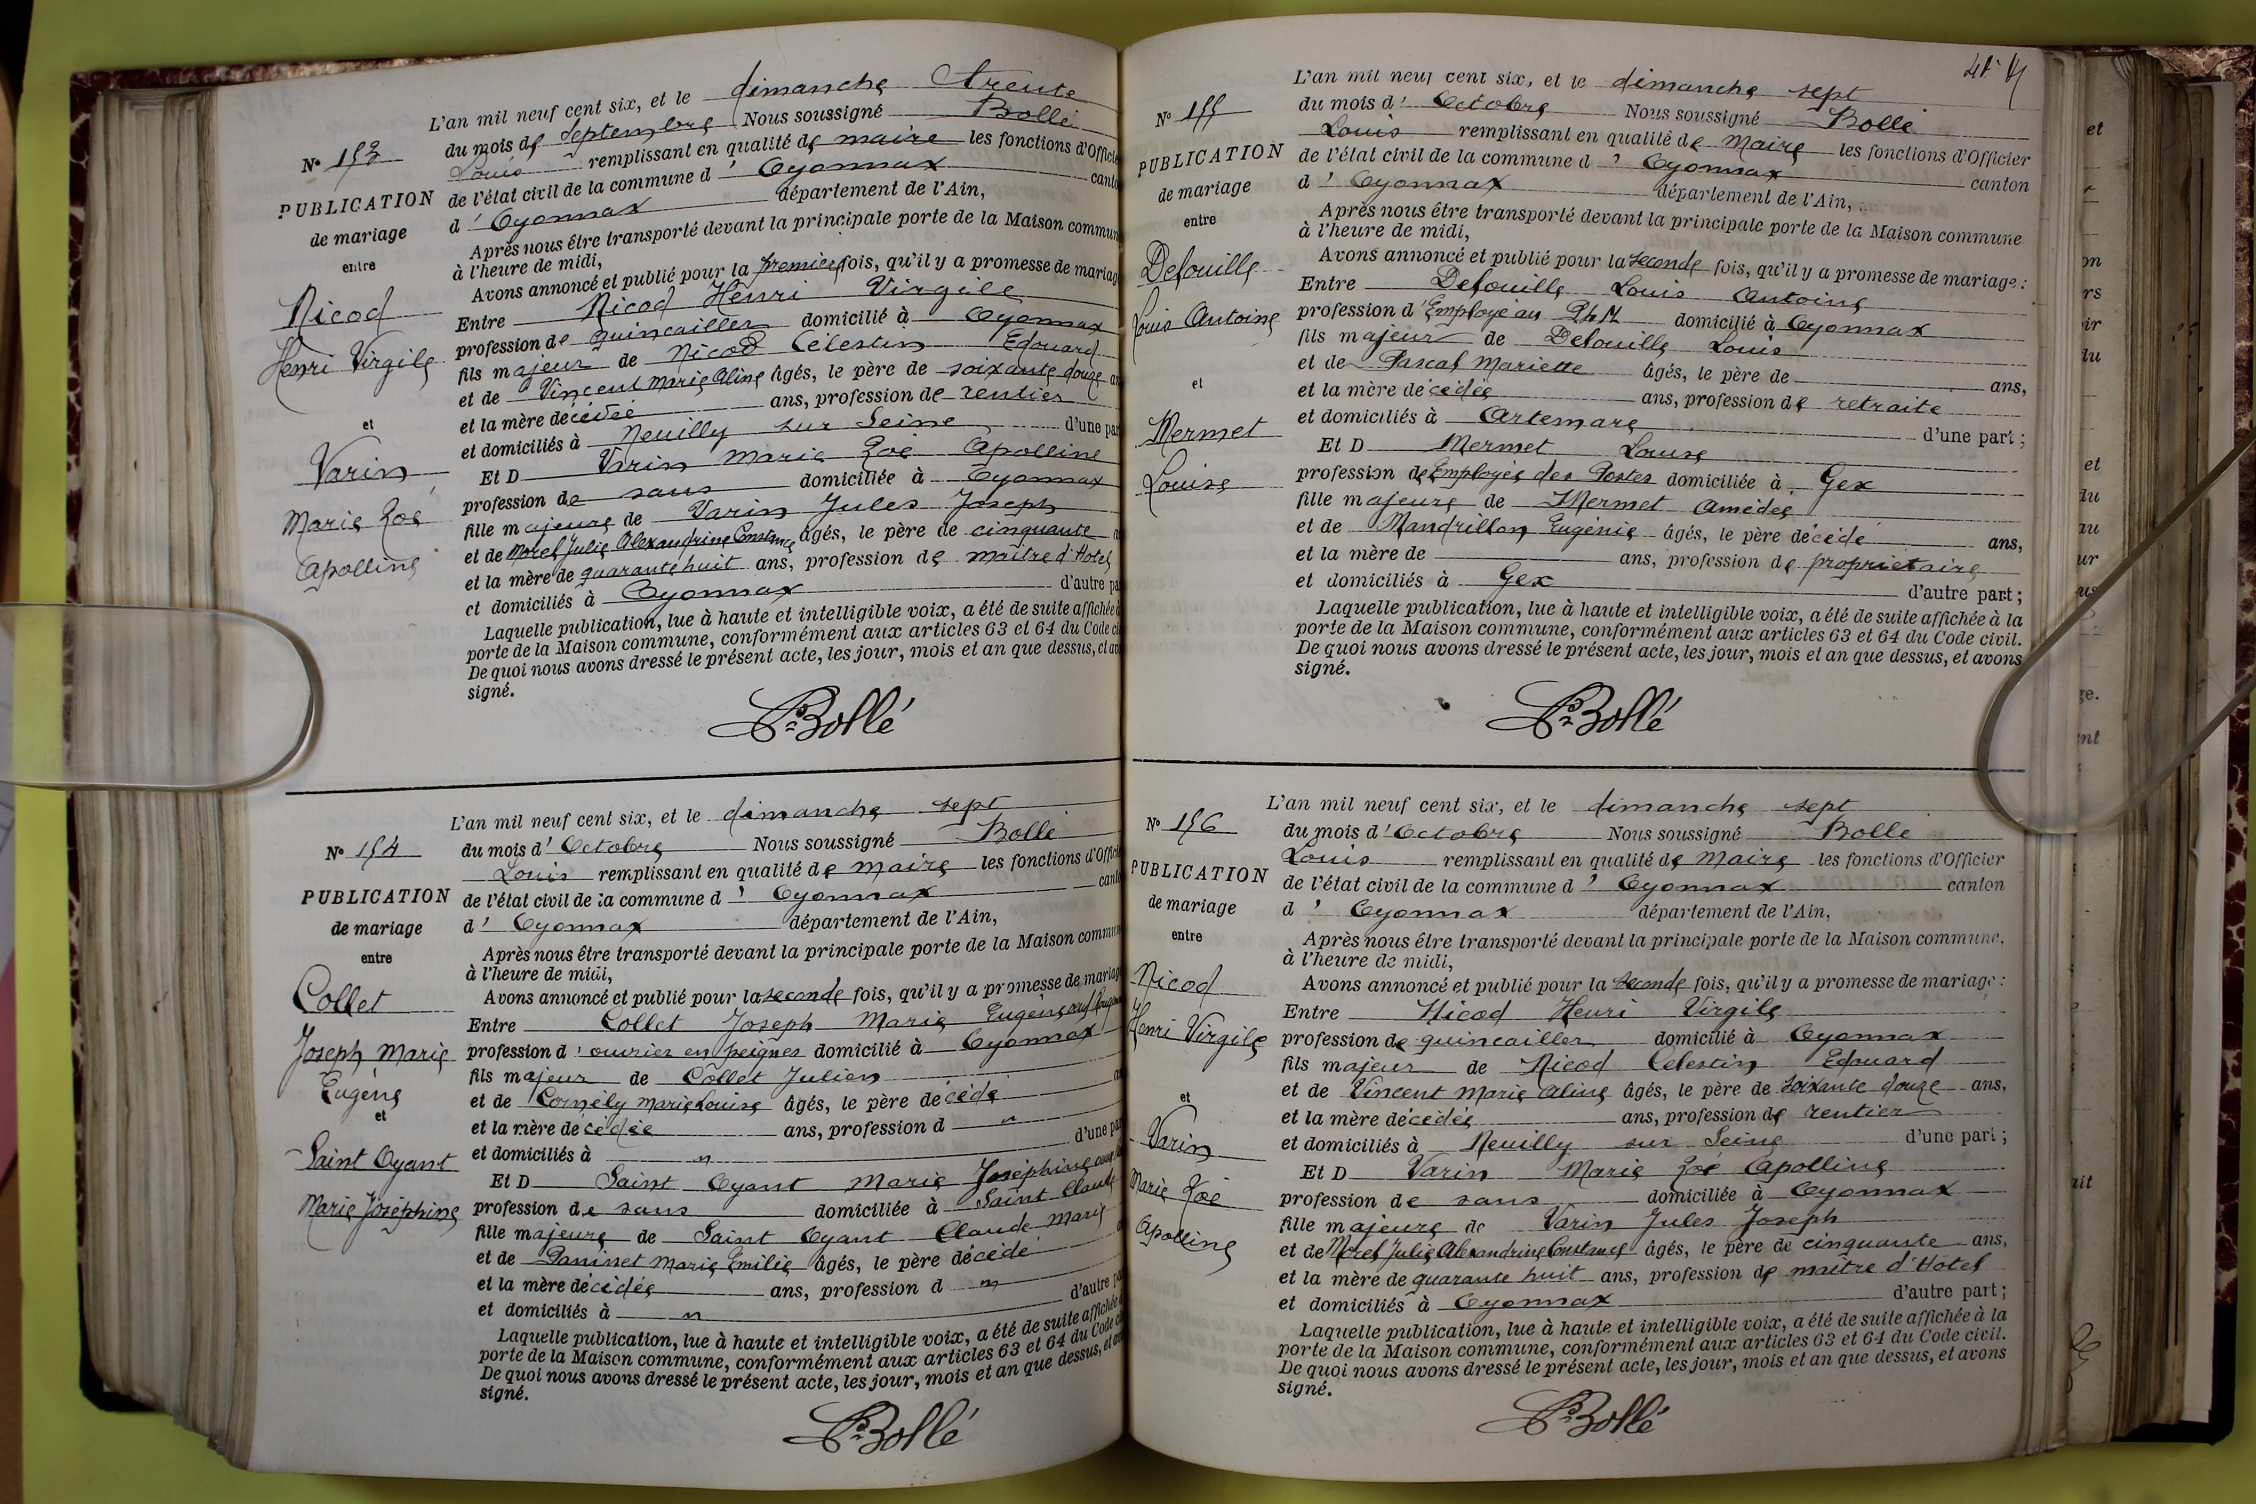 N° 153
PUBLICATION
de mariage
entre
Nicod
Henri Virgile
et
Varin
Marie Zoé
Apolline
L'an mil neuf cent six, et le dimanche trente
du mois de septembre Nous soussigné Bollé
Louis remplissant en qualité de maire les fonctions d'Officier
de l'état civil de la commune d' Oyonnax canton
d' Oyonnax département de l'Ain,
Après nous être transporté devant la principale porte de la Maison commune
à l'heure de midi,
Avons annoncé et publié pour la première fois, qu'il y a promesse de mariage
Entre Nicod Henri Virgile
profession de quincailler domicilié à Oyonnax
fils majeur de Nicod Célestin Edouard
et de Vincent Marie Aline âgés, le père de soixante douze
et la mère décédée ans, profession de rentier
et domiciliés à Neuilly sur Seine d'une part
Et D Varin Marie Zoé Apolline
profession de sans domiciliée à Oyonnax
fille majeure de Varin Jules Joseph
et de Morel Julie Alexandrine Constance âgés, le père de cinquante
et la mère de quarante huit ans, profession de maître d'Hotel
et domiciliés à Oyonnax d'autre part
Laquelle publication, lue à haute et intelligible voix, a été de suite affichée à
porte de la Maison commune, conformément aux articles 63 et 64 du Code civil
De quoi nous avons dressé le présent acte, les jour, mois et an que dessus, et avons
signé.
Bollé
N° 154
PUBLICATION
de mariage
entre
Collet
Joseph Marie
Eugène
et
Saint Oyant
Marie Joséphine
L'an mil neuf cent six, et le dimanche sept
du mois d' Octobre Nous soussigné Bollé
Louis remplissant en qualité de maire les fonctions d'Officier
de l'état civil de la commune d' Oyonnax canton
d' Oyonnax département de l'Ain,
Après nous être transporté devant la principale porte de la Maison commune
à l'heure de midi,
Avons annoncé et publié pour la seconde fois, qu'il y a promesse de mariage
Entre Collet Joseph Marie Eugène
profession d' ouvrier en peignes domicilié à Oyonnax
fils majeur de Collet Julien
et de Cornély Marie Louise âgés, le père décédé
et la mère décédée ans, profession d "
et domiciliés à " d'une part
Et D Saint Oyant Marie Joséphine
profession de sans domiciliée à Saint Claude
fille majeure de Saint Oyant Claude Marie
et de Daninet Marie Emilie âgés, le père décédé
et la mère décédée ans, profession d "
et domiciliés à " d'autre part
Laquelle publication, lue à haute et intelligible voix, a été de suite affichée à
porte de la Maison commune, conformément aux articles 63 et 64 du Code civil
De quoi nous avons dressé le présent acte, les jour, mois et an que dessus, et avons
signé.
Bollé
N° 155
PUBLICATION
de mariage
entre
Defouille
Louis Antoine
et
Mermet
Louise
L'an mil neuf cent six, et le dimanche sept
du mois d' Octobre Nous soussigné Bollé
Louis remplissant en qualité de Maire les fonctions d'Officier
de l'état civil de la commune d' Oyonnax canton
d' Oyonnax département de l'Ain,
Après nous être transporté devant la principale porte de la Maison commune
à l'heure de midi,
Avons annoncé et publié pour la seconde fois, qu'il y a promesse de mariage :
Entre Defouille Louis Antoine
profession d' Employé au P L M domicilié à Oyonnax
fils majeur de Defouille Louis
et de Pascal Mariette âgés, le père de ans,
et la mère décédée ans, profession de retraité
et domiciliés à Artemare d'une part ;
Et D Mermet Louise
profession de Employée des Postes domiciliée à Gex
fille majeure de Mermet Amédée
et de Mandrillon Eugénie âgés, le père décédé ans,
et la mère de ans, profession de propriétaire
et domiciliés à Gex d'autre part ;
Laquelle publication, lue à haute et intelligible voix, a été de suite affichée à la
porte de la Maison commune, conformément aux articles 63 et 64 du Code civil.
De quoi nous avons dressé le présent acte, les jour, mois et an que dessus, et avons
signé.
Bollé
N° 156
PUBLICATION
de mariage
entre
Nicod
Henri Virgile
et
Varin
Marie Zoé
Apolline
L'an mil neuf cent six, et le dimanche sept
du mois d' Octobre Nous soussigné Bollé
Louis remplissant en qualité de Maire les fonctions d'Officier
de l'état civil de la commune d' Oyonnax canton
d' Oyonnax département de l'Ain,
Après nous être transporté devant la principale porte de la Maison commune,
à l'heure de midi,
Avons annoncé et publié pour la seconde fois, qu'il y a promesse de mariage :
Entre Nicod Henri Virgile
profession de quincailler domicilié à Oyonnax
fils majeur de Nicod Célestin Edouard
et de Vincent Marie Aline âgés, le père de soixante douze ans,
et la mère décédée ans, profession de rentier
et domiciliés à Neuilly sur Seine d'une part ;
Et D Varin Marie Zoé Apolline
profession de sans domiciliée à Oyonnax
fille majeure de Varin Jules Joseph
et de Morel Julie Alexandrine Constance âgés, le père de cinquante ans,
et la mère de quarante huit ans, profession de maître d'Hôtel
et domiciliés à Oyonnax d'autre part ;
Laquelle publication, lue à haute et intelligible voix, a été de suite affichée à la
porte de la Maison commune, conformément aux articles 63 et 64 du Code civil.
De quoi nous avons dressé le présent acte, les jour, mois et an que dessus, et avons
signé.
Bollé